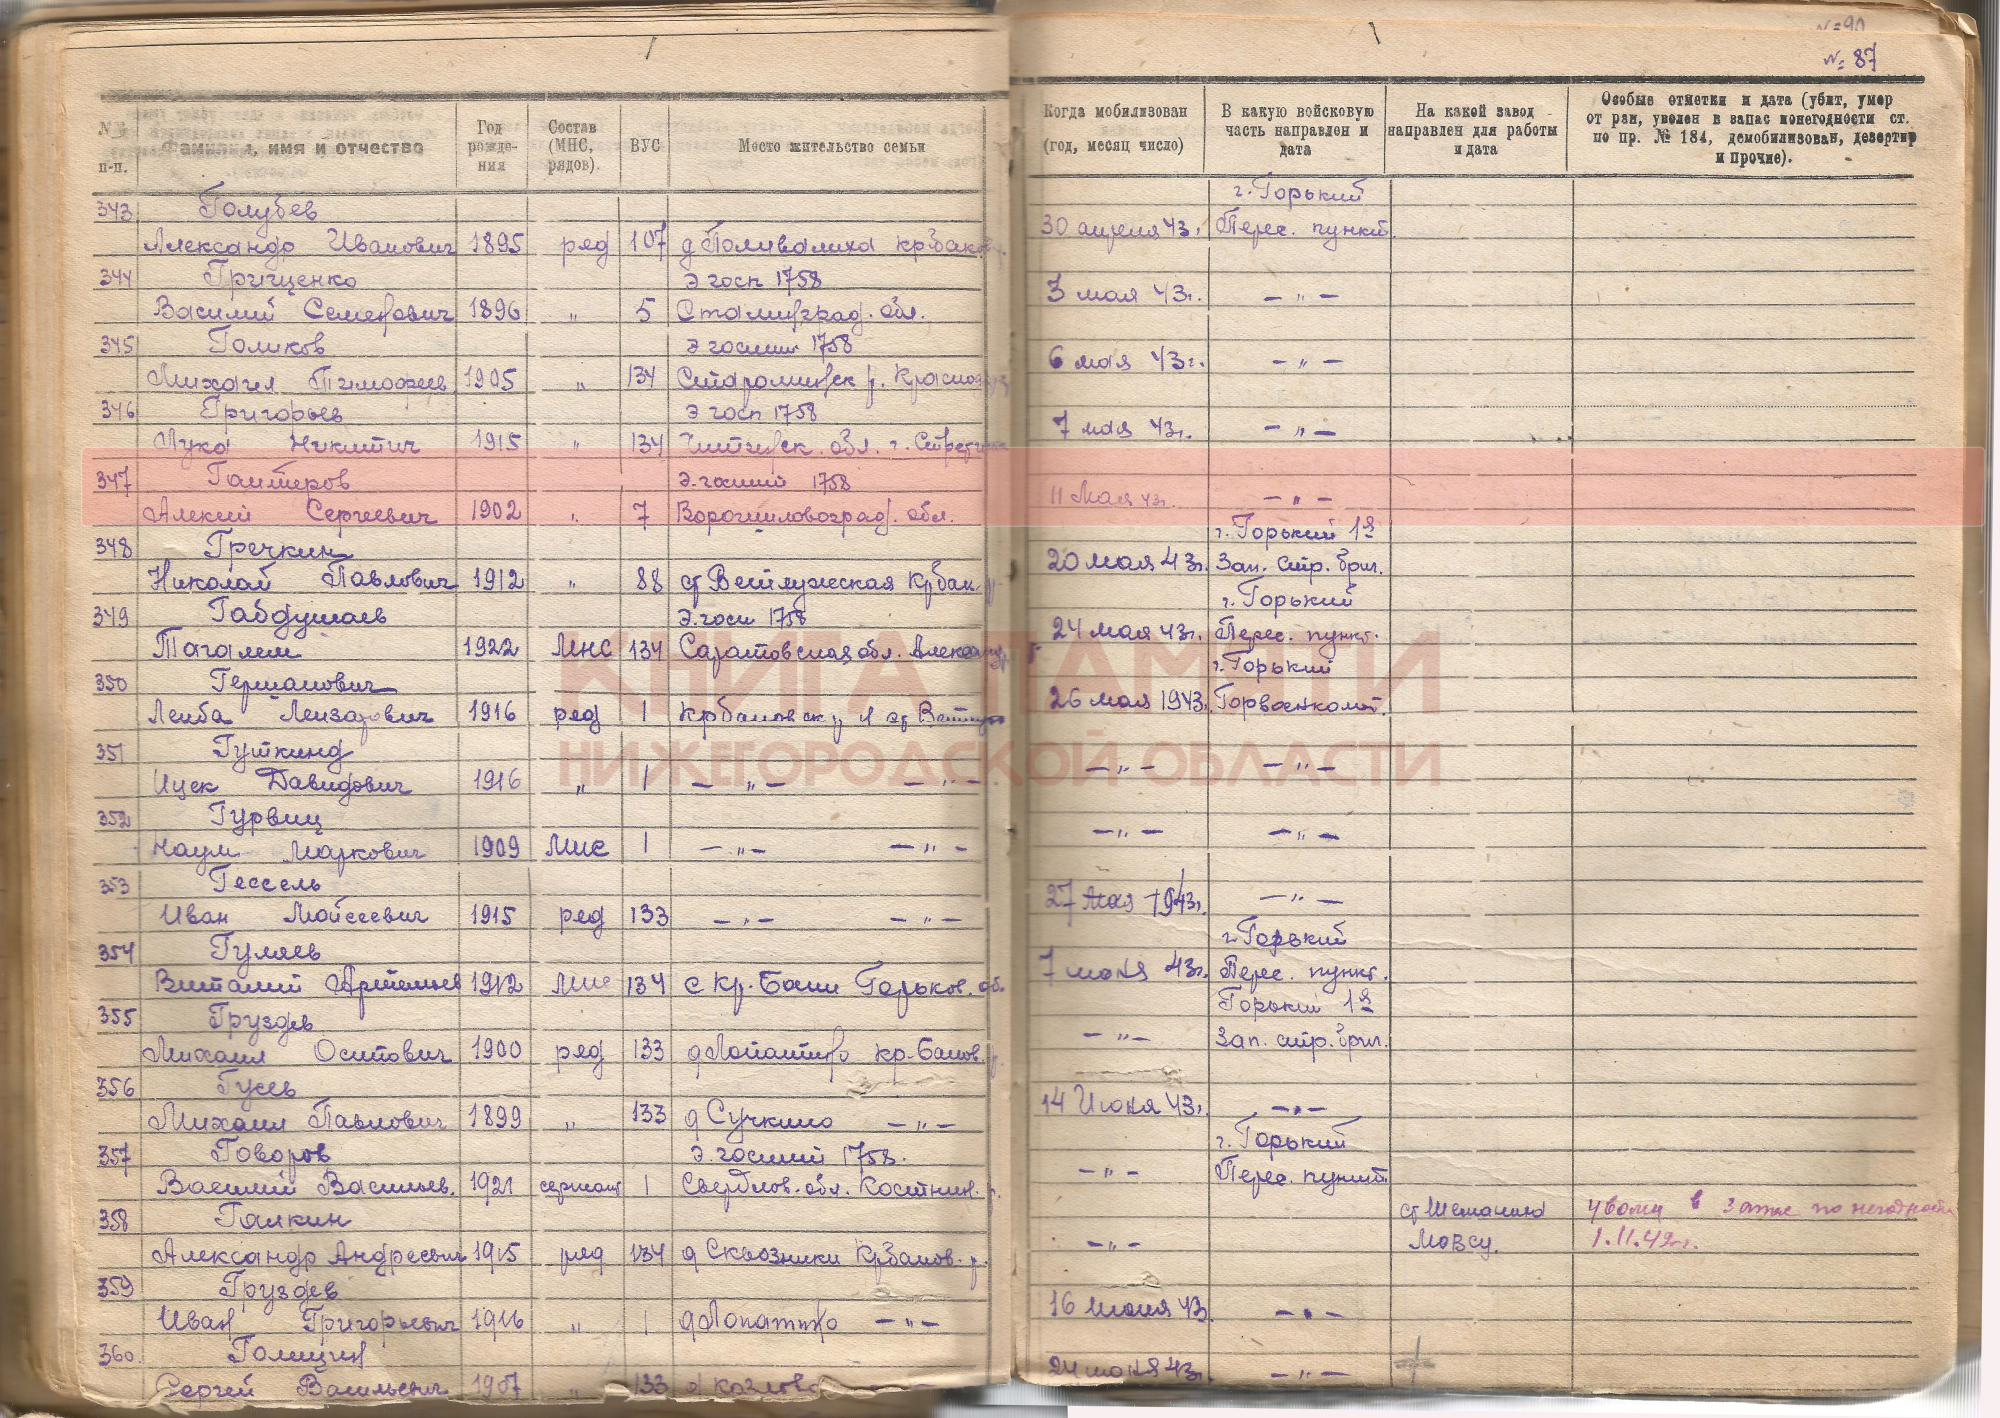 № 90
№ 87
№№ п-п. Фамилия, имя и отчество Год рождения Состав (МНС, рядов). ВУС Место жительство семьи Когда мобилизован (год, месяц число) В какую войсковую часть направлен и дата На какой завод направлен для работы и дата Особые отметки и дата (убит, умер от ран, уволен в запас понегодности ст. по пр. № 184, демобилизован, дезертир и прочие).
343 Голубев г. Горький
Александр Иванович 1895 ряд 107 д Поливалиха 30 апреля 43г. Перес. пункт
344 Грищенко Э госп 1758
Василий Семенович 1896 " 5 Сталинград. обл. 3 мая 43г. — " —
345 Голиков Э госпит 1758
Михаил Тимофеев. 1905 " 134 6 мая 43г. — " —
346 Григорьев Э госп 1758
Лука Никитич 1915 " 134 Читинск. обл. г. 7 мая 43г. — " —
347 Э. госпит 1758
Алексей Сергеевич 1902 " 7 Ворошиловоград. обл. 11 Мая 43г. — " —
348 Гречкин г. Горький 1я
Николай Павлович 1912 " 88 ст Ветлужская Крбак. 20 мая 43г. Зап. стр. бриг.
349 Габдушаев Э. госп 1758 г. Горький
1922 МНС 134 Саратовская обл. 24 мая 43г. Перес. пункт.
350 Германович г. Горький
Лейба Лейзарович 1916 ряд 1 26 мая 1943г. Горвоенкомат.
351 Гуткинд
Ицек Давидович 1916 " 1 — " — — " — — " — — " —
352 Гурвиц
Наум Маркович 1909 МНС 1 — " — — " — — " — — " —
353 Гессель
Иван Мойсеевич 1915 ряд 133 — " — — " — 27 мая 1943г. — " —
354 Гуляев г. Горький
Виталий 1912 МНС 134 с Кр. Баки Горьков. об. 7 июня 43г. Перес. пункт.
355 Груздев Горький 1я
Михаил Осипович 1900 ряд 133 д Лопатино кр-Баков. — " — Зап. стр. бриг.
356 Гусев
Михаил Павлович 1899 " 133 д Сучкино — " — 14 Июня 43г. — " —
357 Говоров Э. госпит 1758. г. Горький
Василий Васильев. 1921 сержант 1 Свердлов. обл. — " — Перес. пункт
358 Галкин ст Шеманино уволен в запас по негодности
Александр Андреевич 1915 ряд 134 д Сквозники Крбаков. р. — " — 1.11.42г.
359 Груздев
Иван Григорьевич 1916 " 1 д Лопатино — " — 16 июня 43г. — " —
360. Голицин
Сергей Васильевич 1907 " 133 24 июня 43г. — " —
КНИГА ПАМЯТИ
НИЖЕГОРОДСКОЙ ОБЛАСТИ